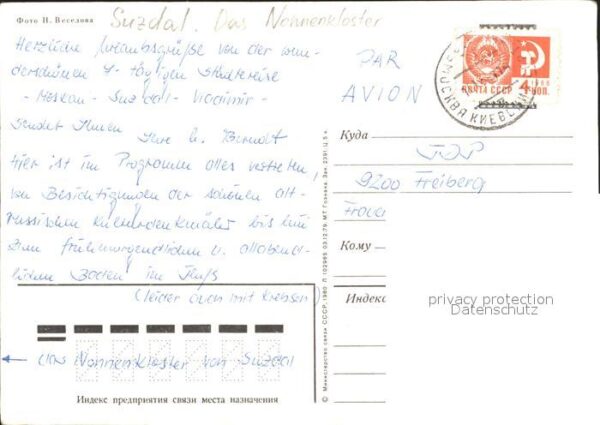 Фото Н. Веселова
Suzdal. Das Nonnenkloster
Herzliche Urlaubsgrüße von der wun-
derschönen 7-tägigen Städtereise
- Moskau - Suzdal - Vladimir -
sendet Ihnen Ihre U. Berndt
Hier ist im Programm alles vertreten,
von Besichtigungen der schönen alt-
russischen Kulturdenkmäler bis hin
zum frühmorgendlichen u. allabend-
lichen Baden im Fluß
(leider auch mit Krebsen)
← das Nonnenkloster von Suzdal
Индекс предприятия связи места назначения
© Министерство связи СССР, 1980 Л 102965 03.12.79 МТ Гознака. Зак. 2391. Ц. 5 к.
PAR
AVION
ПОЧТА СССР
4 КОП.
1966
МОСКВА КИЕВСКИЙ
Куда
9200 Freiberg
Кому
Индекс
privacy protection
Datenschutz